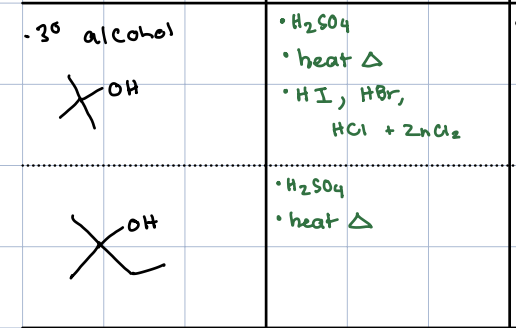 - 3° alcohol
OH
• H₂SO₄
• heat Δ
• HI, HBr,
HCl + ZnCl₂
OH
• H₂SO₄
• heat Δ